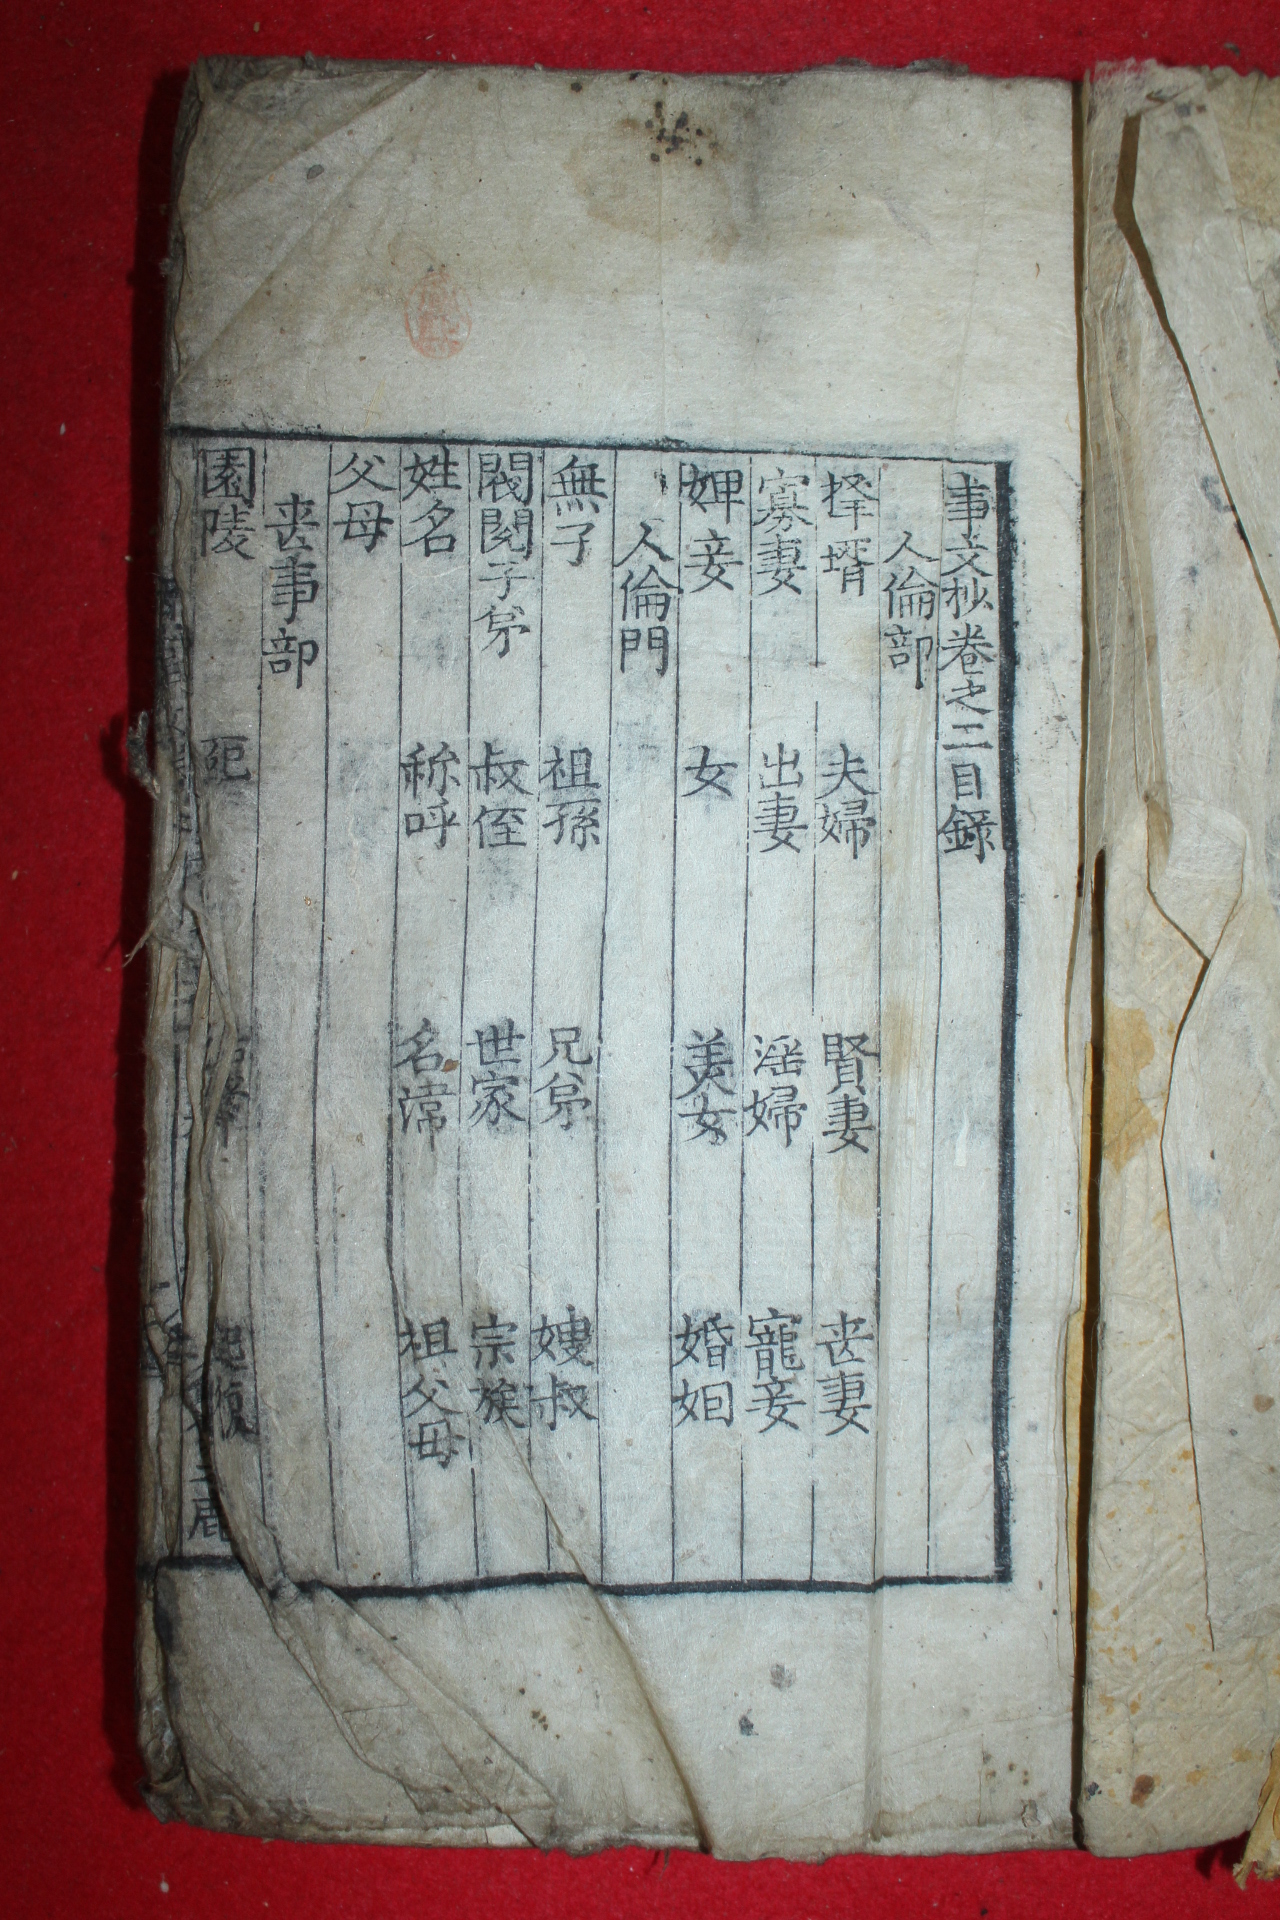 事文抄卷之二目錄
人倫部
擇壻 夫婦 賢妻 丧妻
寡妻 出妻 淫婦 寵妾
婢妾 女 美女 婚姻
人倫門
無子 祖孫 兄弟 嫂叔
閥閱子弟 叔侄 世家 宗族
姓名 称呼 名諱 祖父母
父母
丧事部
園陵 死